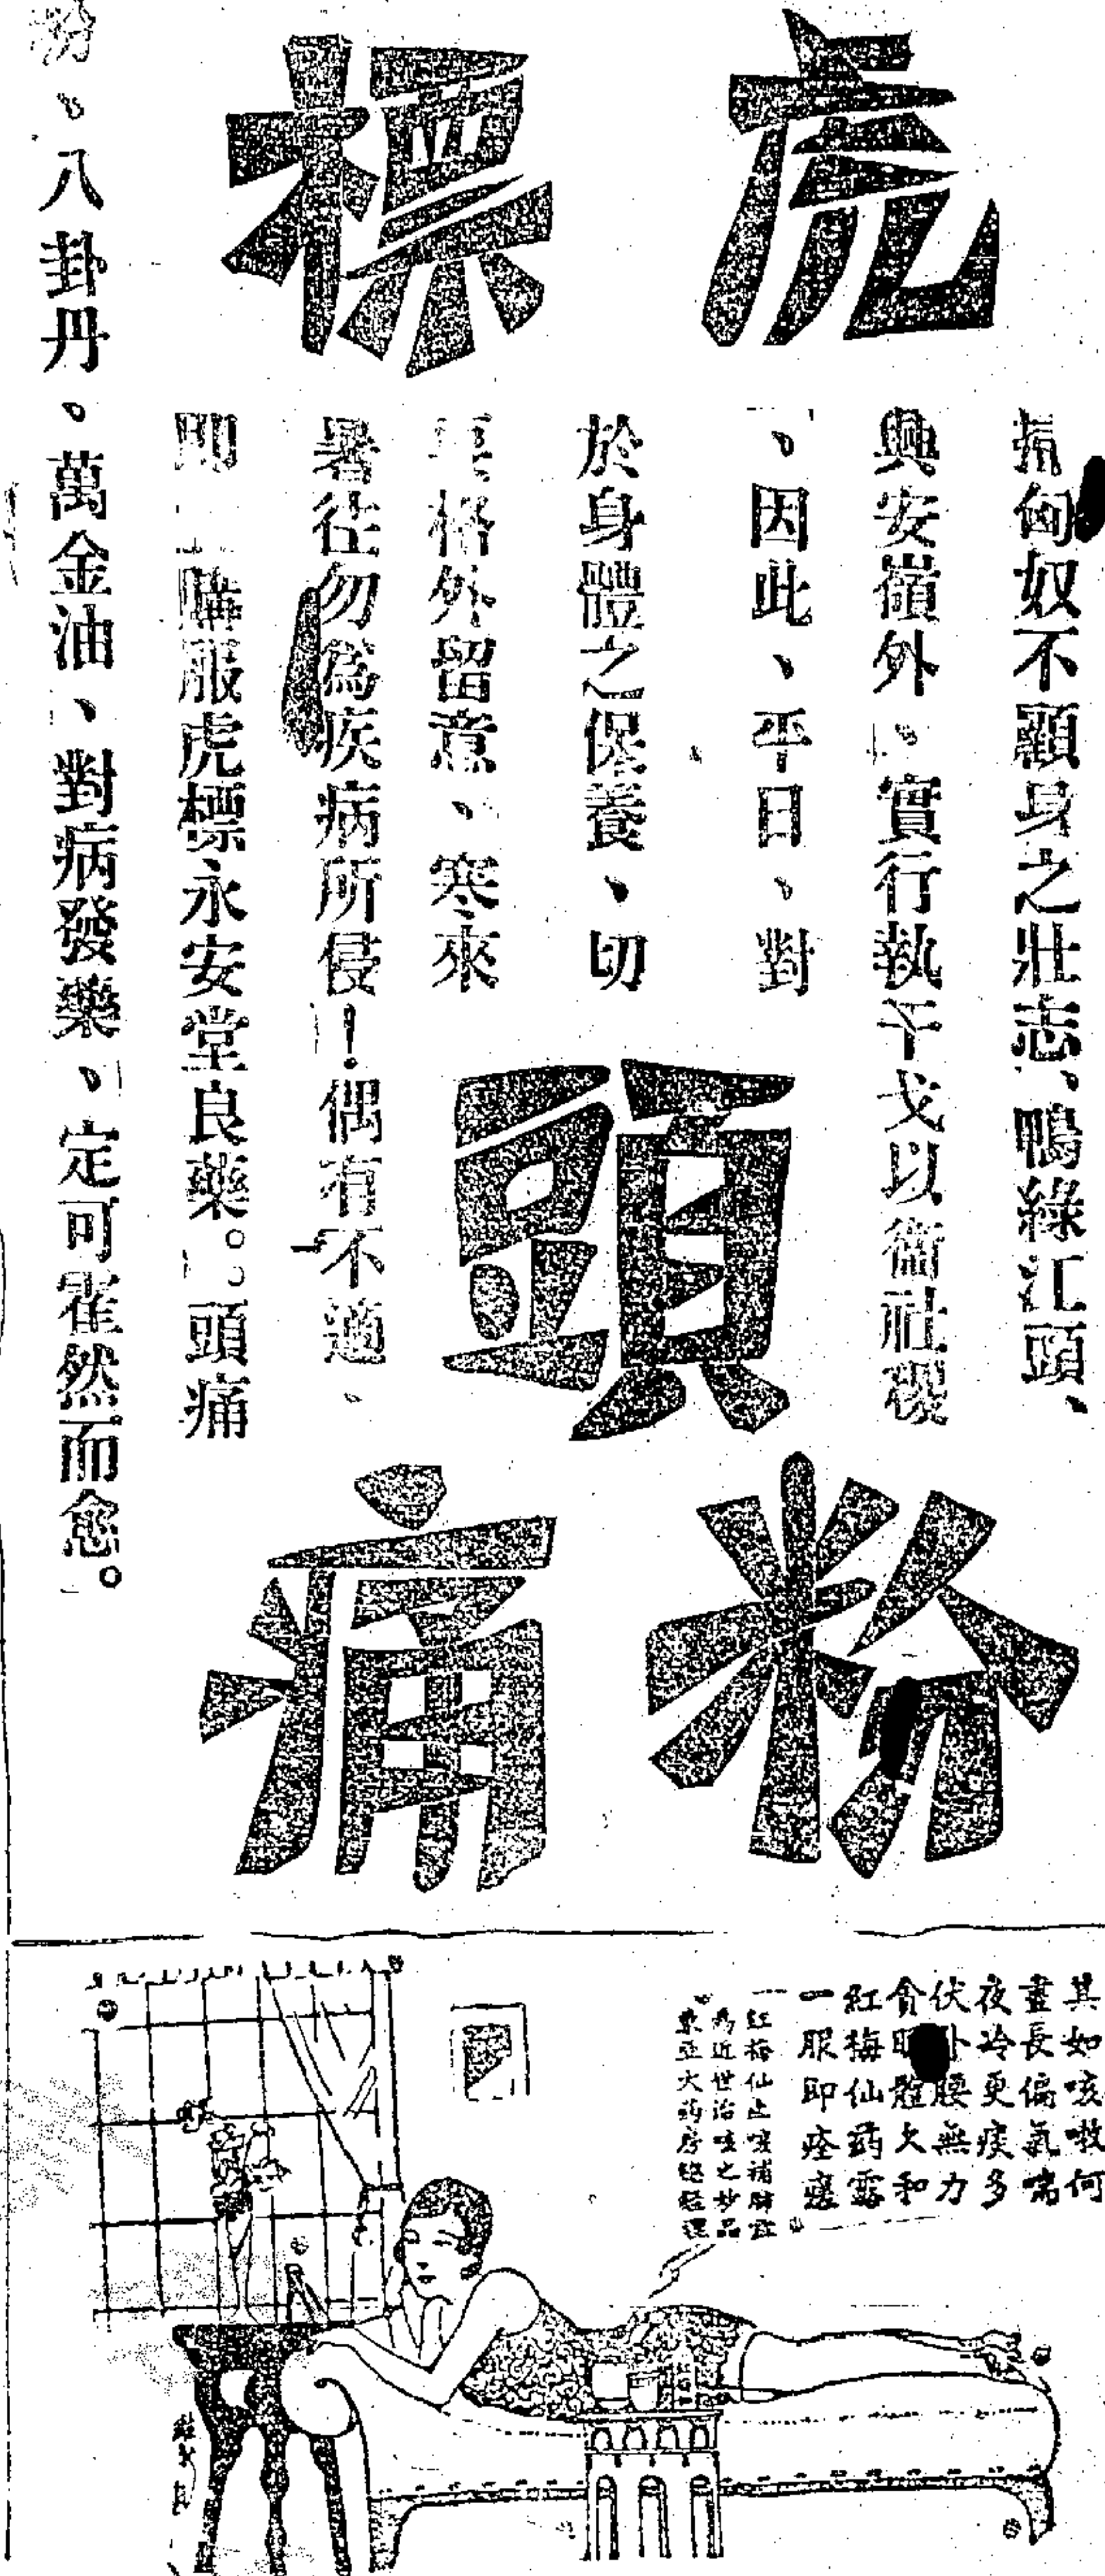 虎標
頭
痛粉
掃匈奴不顧身之壯志、鴨綠江頭、
興安嶺外、實行執干戈以衞社稷
、因此、平日、對
於身體之保養、切
要格外留意、寒來
暑往勿爲疾病所侵！偶有不適、
卽購服虎標永安堂良藥。頭痛
粉、八卦丹。萬金油、對病發藥、定可霍然而愈。
其如咳嗽何
晝長偏氣喘
夜冷更痰多
伏卧腰無力
貪眠體欠和
紅梅仙藥露
一服卽痊瘥
紅梅仙止咳補肺露
爲近世治咳之妙品
東亞大药房總經理